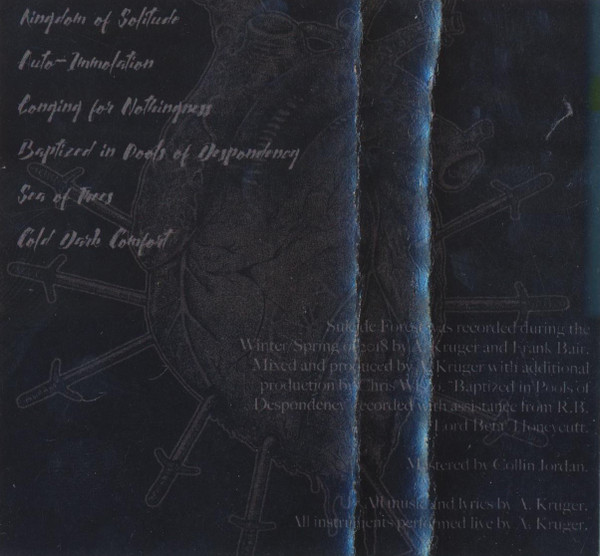 Kingdom of Solitude
Auto-Immolation
Longing for Nothingness
Baptized in Pools of Despondency
Sea of Trees
Cold Dark Comfort
Suicide Forest was recorded during the
Winter/Spring of 2018 by A. Kruger and Frank Bair.
Mixed and produced by A. Kruger with additional
production by Chris "Baptized in Pools of
Despondency" recorded with assistance from R.B.
Lord Honeycutt.
Mastered by Collin Jordan.
All music and lyrics by A. Kruger.
All instruments performed live by A. Kruger.